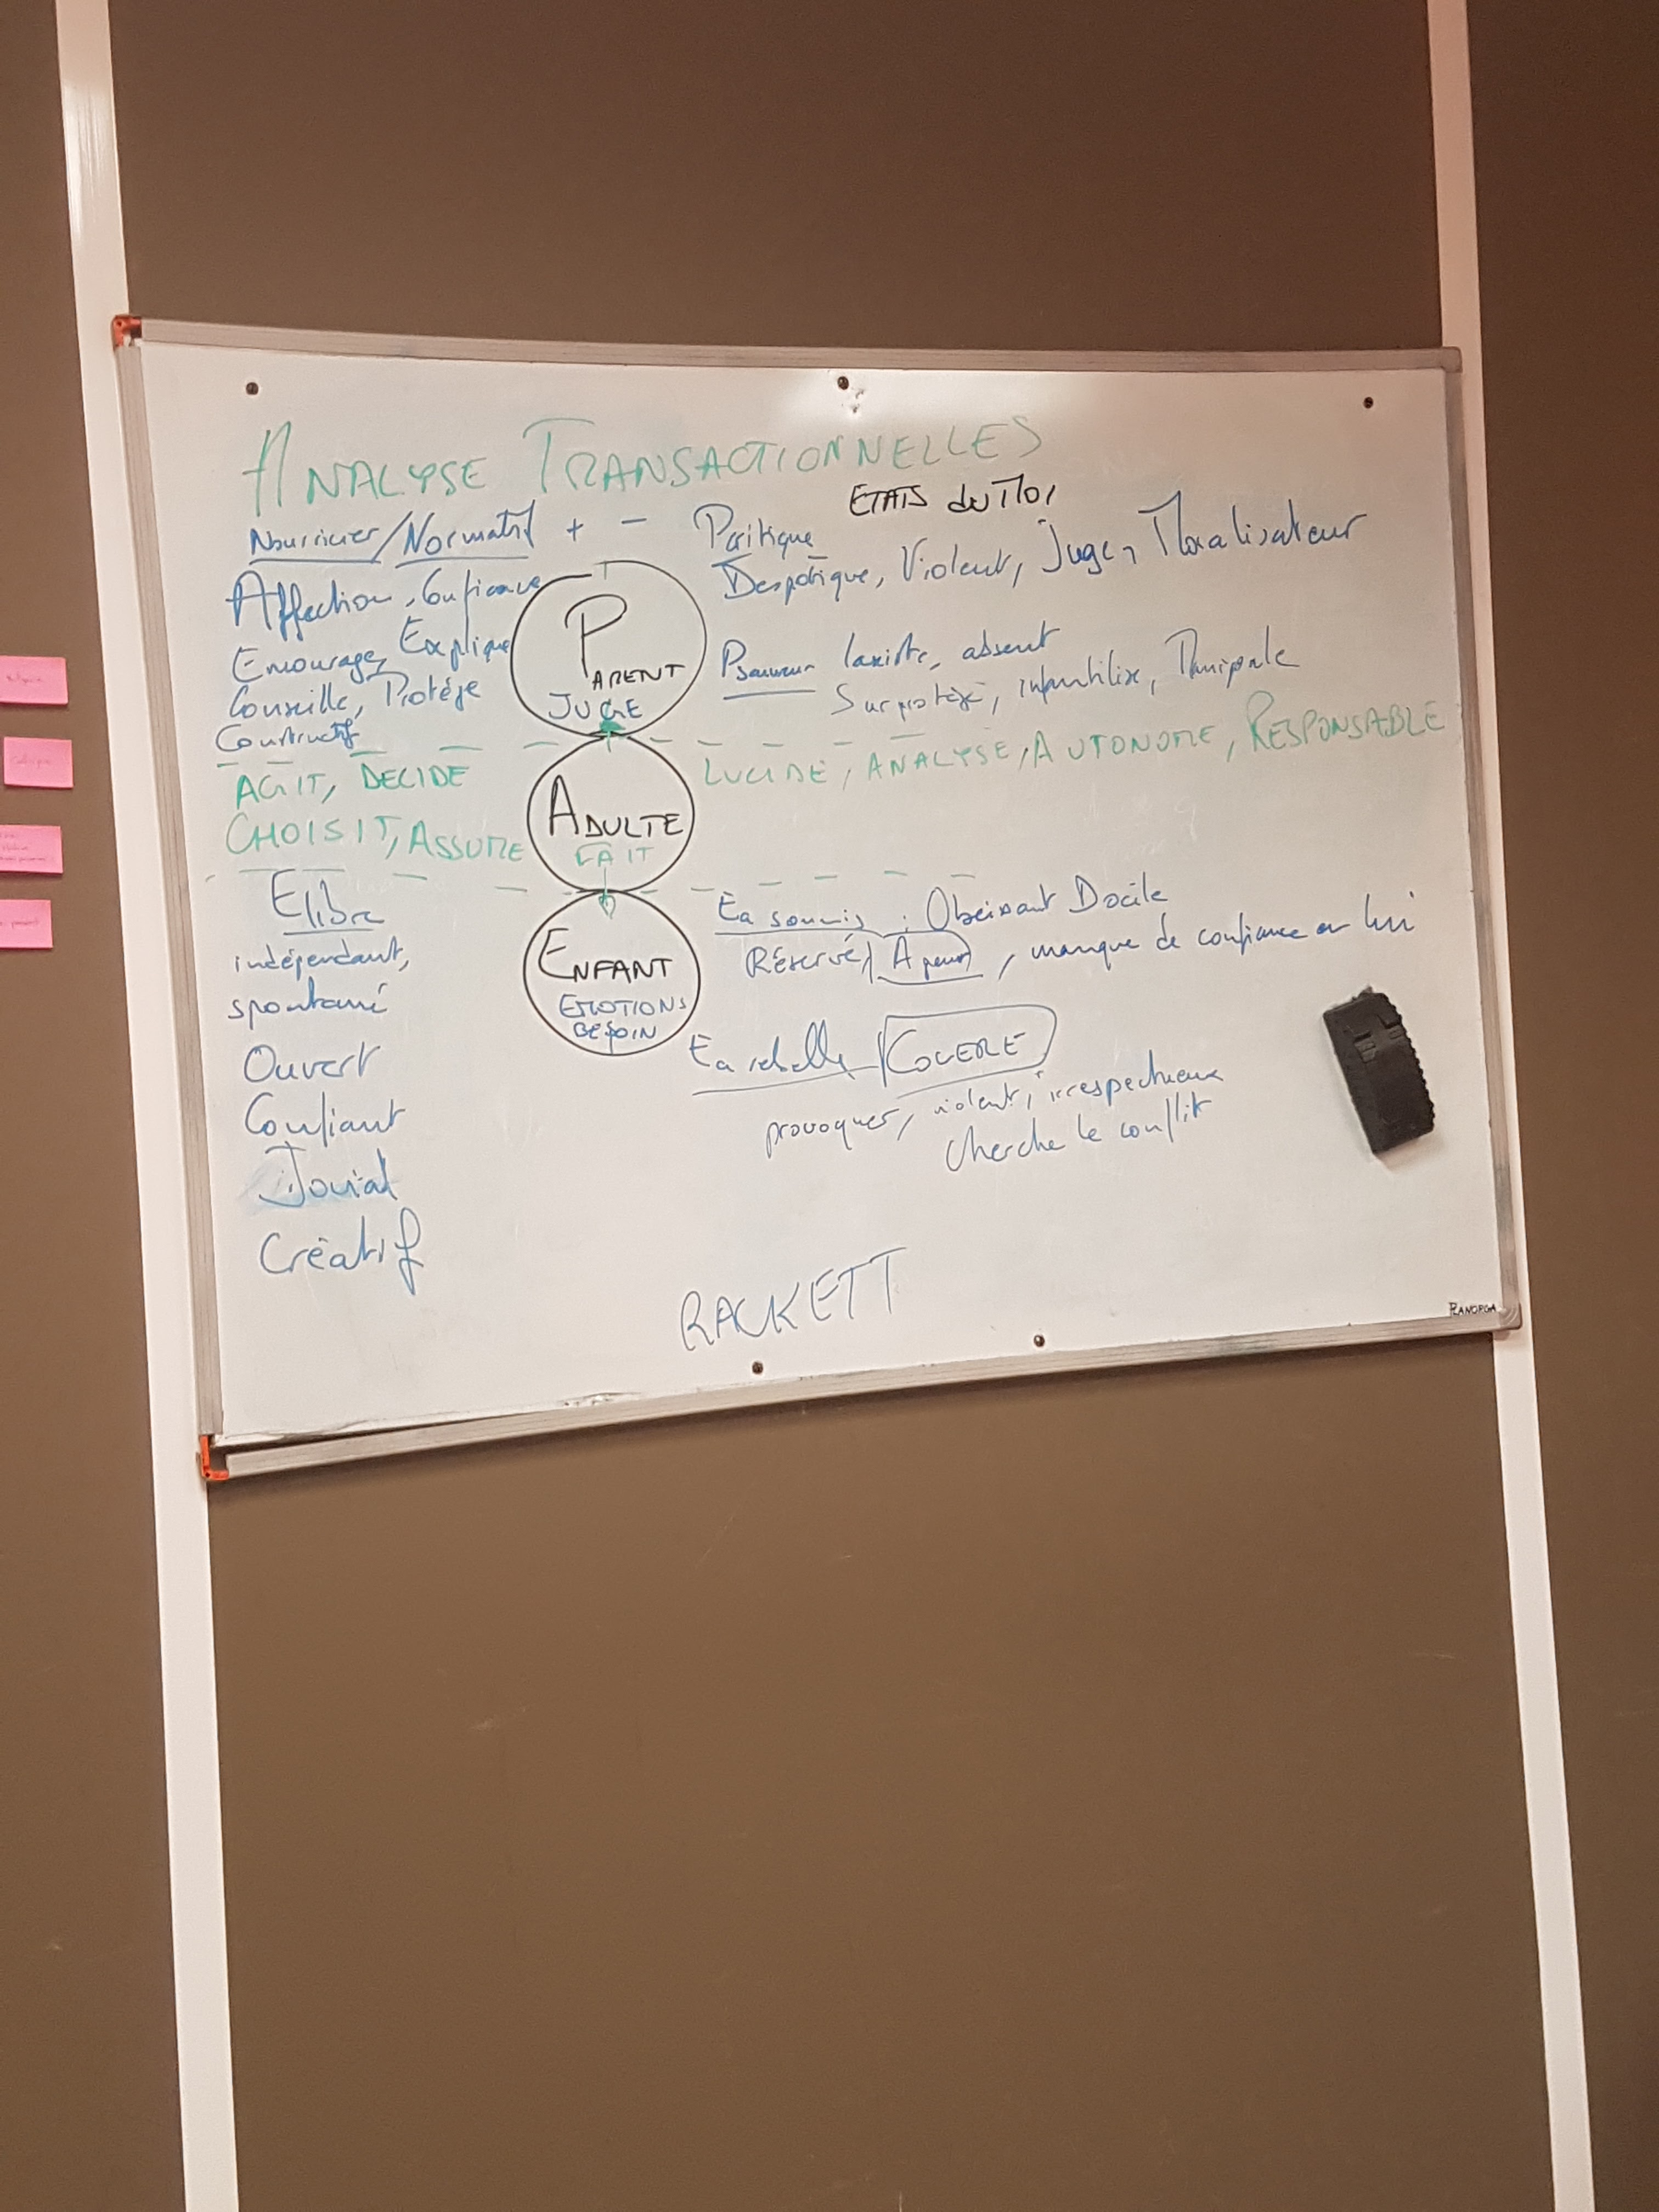 ANALYSE TRANSACTIONNELLES
ETATS du MOI
Nourricier/Normatif + - Pcritique
Affection, Confiance
Despotique, Violent, Juge, Moralisateur
Encourage, Explique
Conseille, Protège
Constructif
PARENT
JUGE
Psauveur laxiste, absent
Surprotège, infantilise,
AGIT, DECIDE
LUCIDE, ANALYSE, AUTONOME, RESPONSABLE
CHOISIT, ASSUME
ADULTE
FAIT
Elibre
indépendant,
spontané
Ouvert
Confiant
Jovial
Créatif
ENFANT
EMOTIONS
BESOIN
Ea soumis : Obeissant Docile
Réservé, A peur, manque de confiance en lui
Ea rebelle COLERE
provoquer, violent, irrespectueux
cherche le conflit
RACKETT
PLANORGA